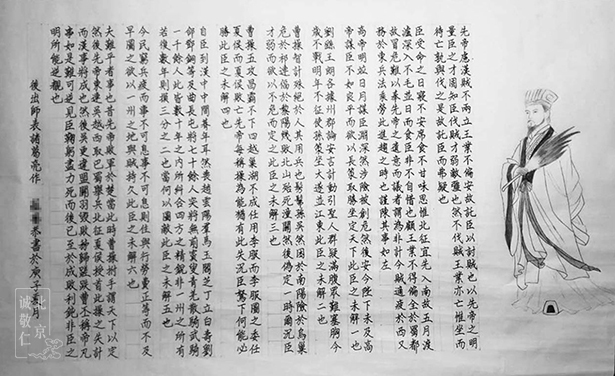 先帝慮漢賊不兩立王業不偏安故託臣以討賊也以先帝之明
量臣之才固知臣伐賊才弱敵彊也然不伐賊王業亦亡惟坐而
待亡孰與伐之是故託臣而弗疑也
臣受命之日寢不安席食不甘味思惟北征宜先入南故五月渡
瀘深入不毛并日而食臣非不自惜也顧王業不得偏全於蜀都
故冒危難以奉先帝之遺意而議者謂為非計今賊適疲於西又
務於東兵法乘勞此進趨之時也謹陳其事如左
高帝明並日月謀臣淵深然涉險被創危然後安今陛下未及高
帝謀臣不如良平而欲以長策取勝坐定天下此臣之未解一也
劉繇王朗各據州郡論安言計動引聖人群疑滿腹眾難塞胸今
歲不戰明年不征使孫策坐大遂並江東此臣之未解二也
曹操智計殊絕於人其用兵也髣髴孫吳然困於南陽險於烏巢
危於祁連偪於黎陽幾敗北山殆死潼關然後偽定一時爾況臣
才弱而欲以不危而定之此臣之未解三也
曹操五攻昌霸不下四越巢湖不成任用李服而李服圖之委任
夏侯而夏侯敗亡先帝每稱操為能猶有此失況臣駑下何能必
勝此臣之未解四也
自臣到漢中中間朞年耳然喪趙雲陽羣馬玉閻芝丁立白壽劉
郃鄧銅等及曲長屯將七十餘人突將無前賨叟青羌散騎武騎
一千餘人此皆數十年之內所糾合四方之精銳非一州之所有
若復數年則損三分之二也當何以圖敵此臣之未解五也
今民窮兵疲而事不可息事不可息則住與行勞費正等而不及
早圖之欲以一州之地與賊持久此臣之未解六也
大難平者事也昔先帝敗軍於楚當此時曹操拊手謂天下以定
然後先帝東連吳越西取巴蜀舉兵北征夏侯授首此操之失計
而漢事將成也然後吳更違盟關羽毀敗秭歸蹉跌曹丕稱帝凡
事如是難可逆見臣鞠躬盡力死而後已至於成敗利鈍非臣之
明所能逆覩也
後出師表諸葛亮作 恭書於庚子月
北京
诚敬仁